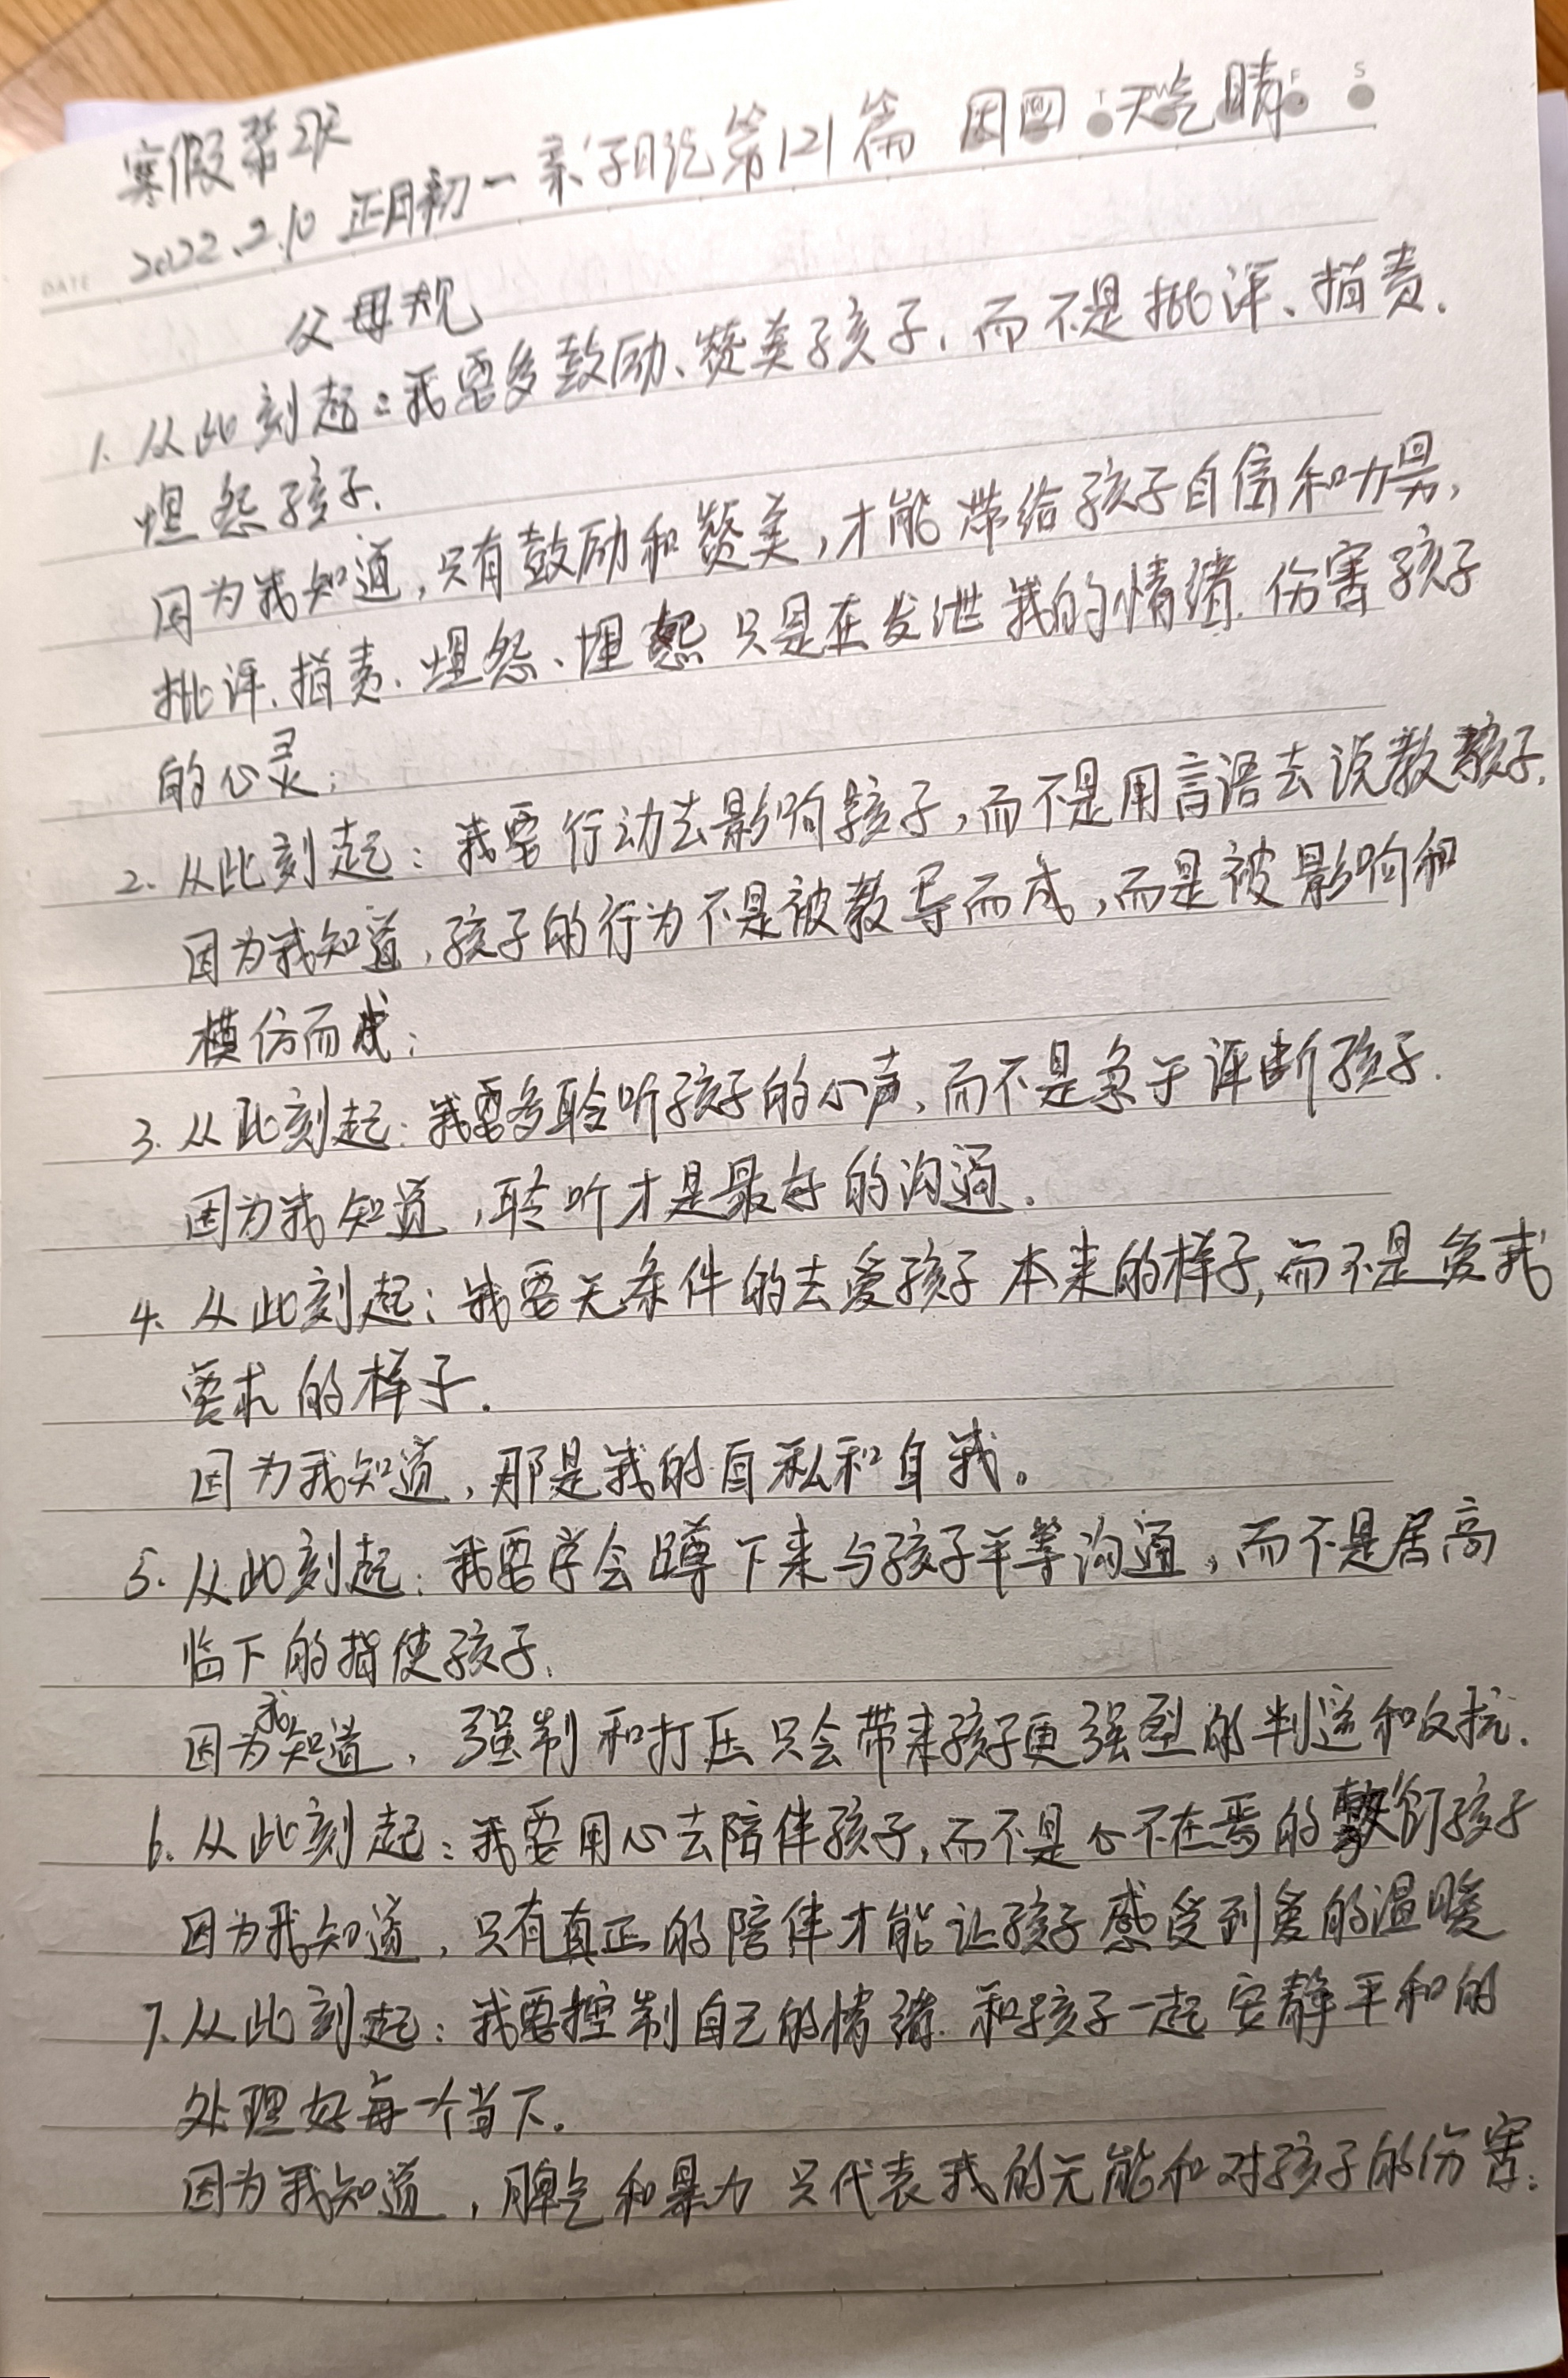 寒假第2天
2022.2.10 正月初一 亲子日记第121篇 周四 天气晴
DATE T F S
父母规
1. 从此刻起:我要多鼓励、赞美孩子,而不是批评、指责.
埋怨孩子.
因为我知道,只有鼓励和赞美,才能带给孩子自信和力量,
批评、指责、埋怨、埋怨只是在发泄我的情绪.伤害孩子
的心灵;
2. 从此刻起:我要行动去影响孩子,而不是用言语去说教孩子.
因为我知道,孩子的行为不是被教导而成,而是被影响和
模仿而成;
3. 从此刻起:我要多聆听孩子的心声,而不是急于评断孩子.
因为我知道,聆听才是最好的沟通.
4. 从此刻起:我要无条件的去爱孩子本来的样子,而不是爱我
要求的样子.
因为我知道,那是我的自私和自我。
5. 从此刻起:我要学会蹲下来与孩子平等沟通,而不是居高
临下的指使孩子.
因为我知道,强制和打压只会带来孩子更强烈的判逆和反抗.
6. 从此刻起:我要用心去陪伴孩子,而不是心不在焉的敷衍孩子
因为我知道,只有真正的陪伴才能让孩子感受到爱的温暖
7. 从此刻起:我要控制自己的情绪.和孩子一起安静平和的
处理好每一个当下。
因为我知道,脾气和暴力只代表我的无能和对孩子的伤害;